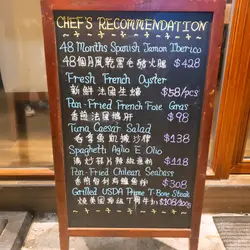 CHEF'S RECOMMENDATION
48 Months Spanish Jamon Iberico
48個月風乾黑毛豬火腿 $428
Fresh French Oyster
新鮮法國生蠔 $58/pcs
Pan-Fried French Foie Gras
香煎法國鵝肝 $98
Tuna Caesar Salad
吞拿魚凱撒沙律 $138
Spaghetti Aglio E Olio
$118
Pan-Fried Chilean Seabass
$308
Grilled USDA Prime T-Bone Steak
$108/100g